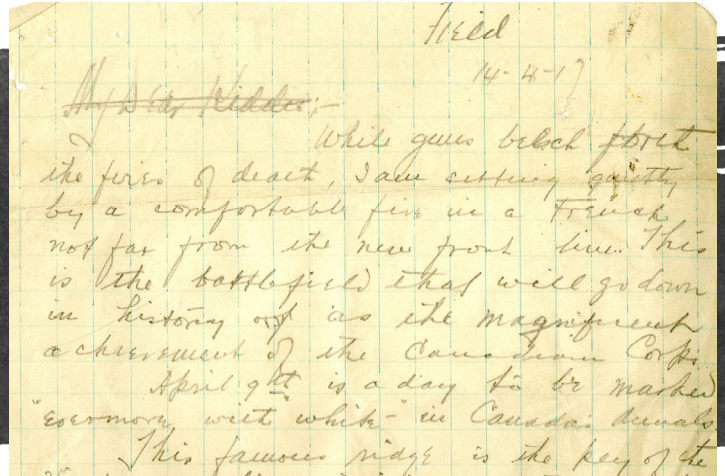 Field
14-4-17
My Dear Kiddie:-
While guns belch forth
the fires of death, I am sitting quietly
by a comfortable fire in a French
not far from the new front line. This
is the battlefield that will go down
in history as the magnificent
achievement of the Canadian Corps.
April 9th is a day to be marked
"evermore with white" in Canada's Annals
This famous ridge is the key of the